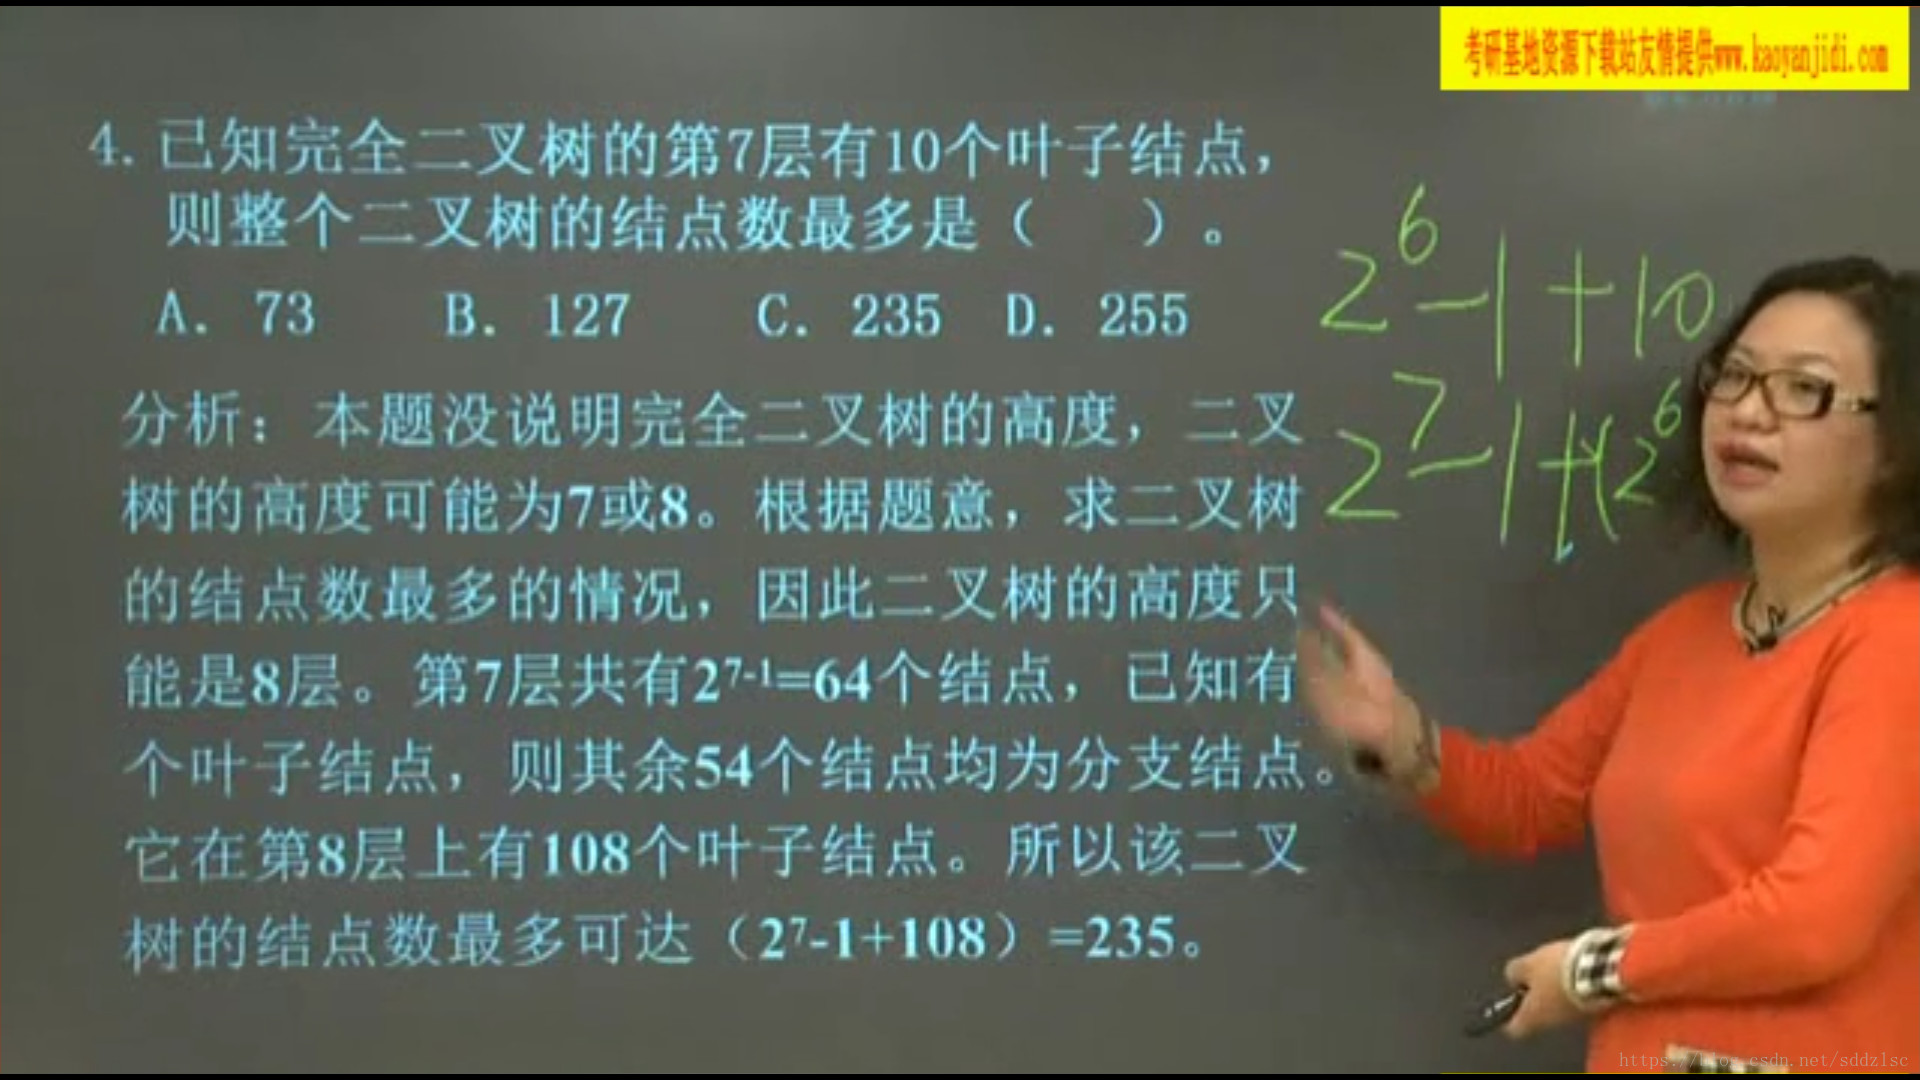 考研基地资源下载站友情提供www.kaoyanjidi.com
4. 已知完全二叉树的第7层有10个叶子结点，
则整个二叉树的结点数最多是（ ）。
A. 73 B. 127 C. 235 D. 255
分析：本题没说明完全二叉树的高度，二叉
树的高度可能为7或8。根据题意，求二叉树
的结点数最多的情况，因此二叉树的高度只
能是8层。第7层共有2⁷⁻¹=64个结点，已知有
个叶子结点，则其余54个结点均为分支结点。
它在第8层上有108个叶子结点。所以该二叉
树的结点数最多可达（2⁷-1+108）=235。
2⁶-1+10
2⁷-1+(2⁶
https://blog.csdn.net/sddzlsc